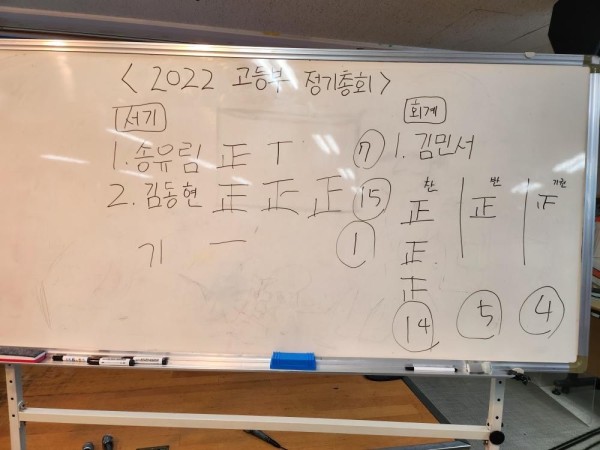 < 2022 고등부 정기총회 >
서기
1. 송유림 正 丅 7
2. 김동현 正 正 正 15
기 一 1
회계
1. 김민서
찬 반 기권
正 正 正
正
正
14 5 4